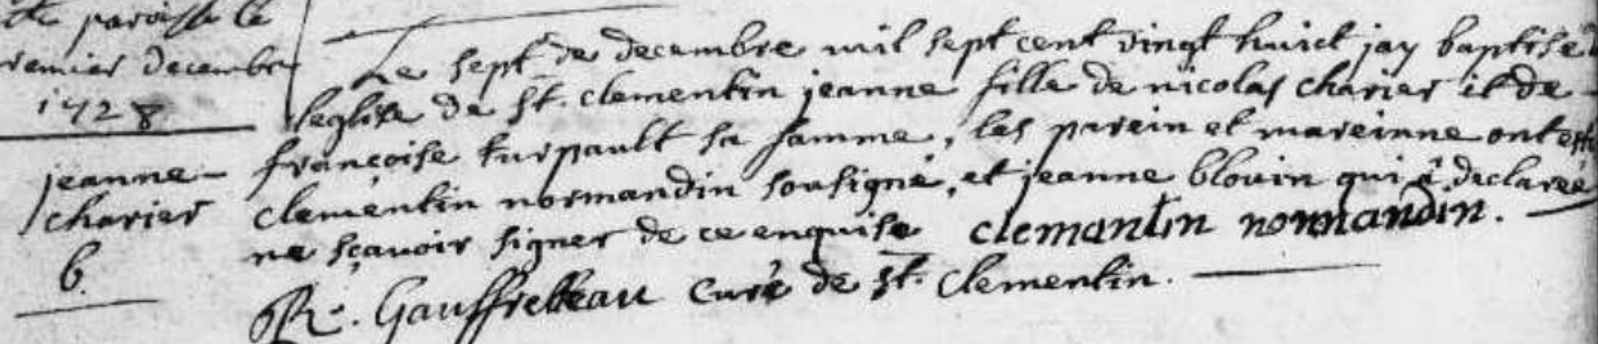 paroisse le
premier decembre
1728
jeanne
charier
b.
Le sept de decembre mil sept cent vingt huict jay baptisé
leglise de st. clementin jeanne fille de nicolas charier et de
françoise turpault sa famme, les parein et mareinne ont esté
clementin normandin sousigné, et jeanne blouin qui a declareé
ne sçavoir signer de ce enquise clemantin normandin.
R. Gauffreteau curé de st. Clementin.